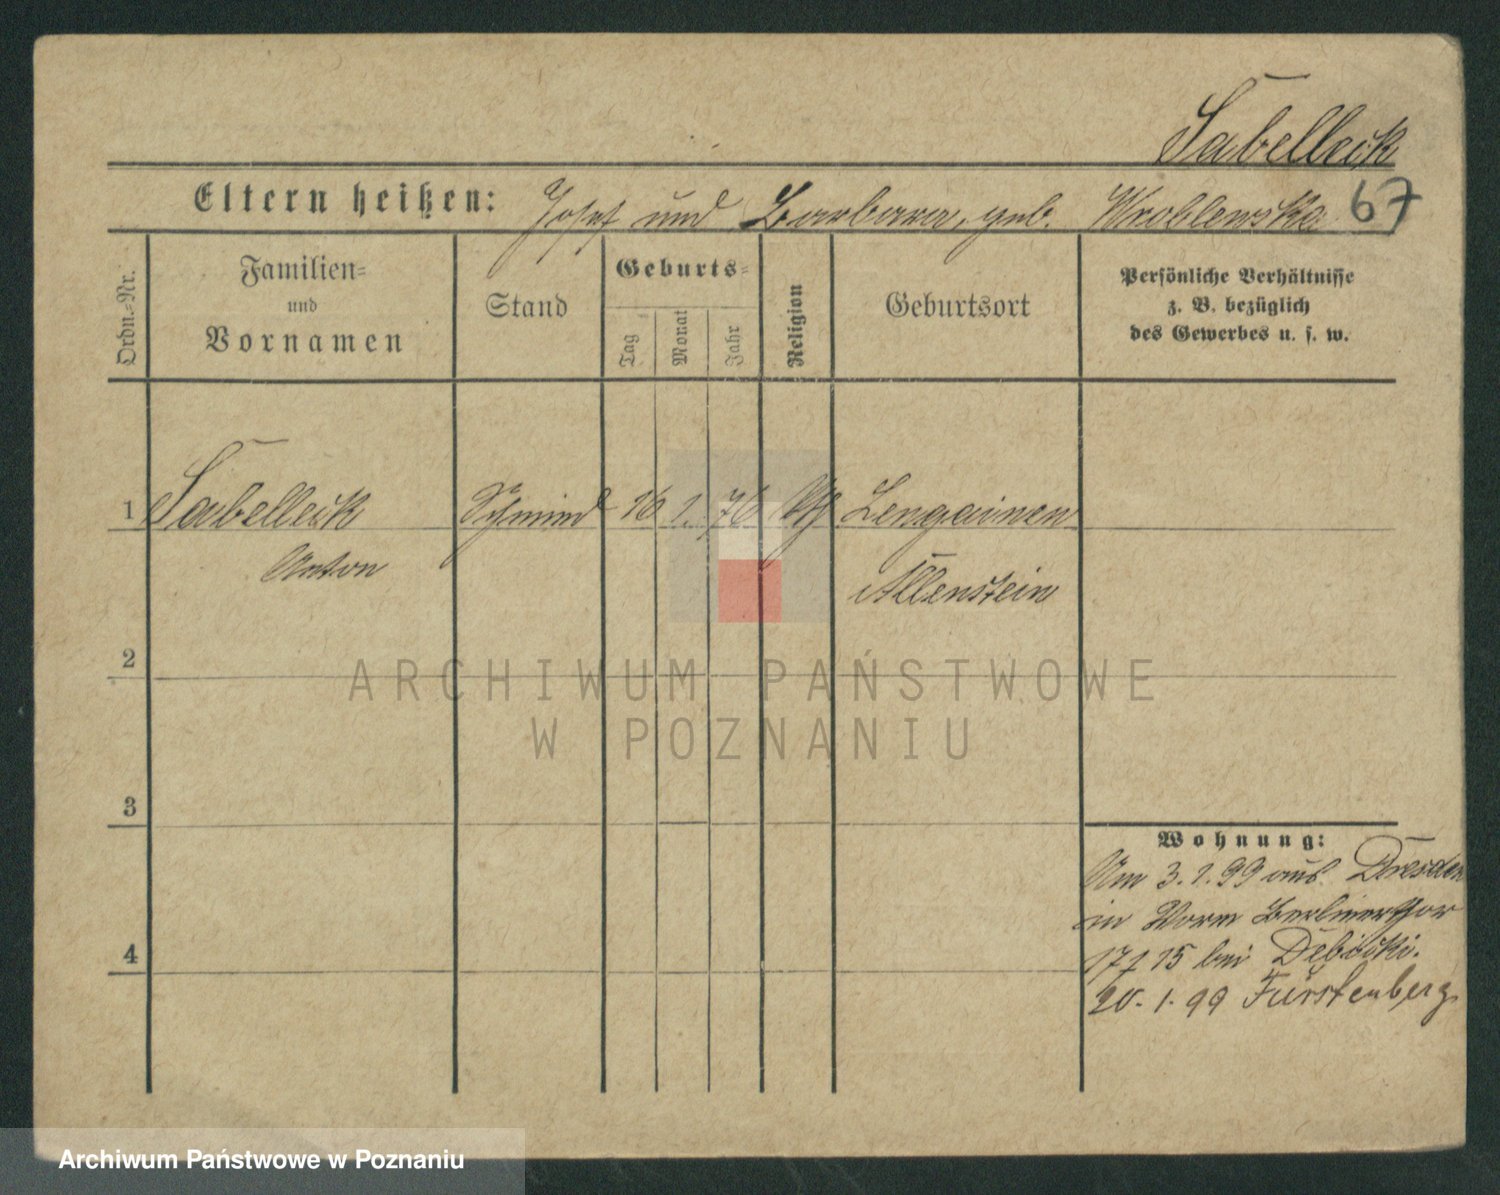 Sabelleck
Eltern heißen: Josef und Barbara, geb. Wroblewska 67
Ordn.-Nr.
Familien-
und
Vornamen
Stand
Geburts-
Tag
Monat
Jahr
Religion
Geburtsort
Persönliche Verhältnisse
z. B. bezüglich
des Gewerbes u. s. w.
1 Sabelleck Schmied 16 1. 76 Lengainen
Anton
Allenstein
2
ARCHIWUM PAŃSTWOWE
W POZNANIU
3
Wohnung:
Am 3.1.99 aus Dresden
in Vorm Berlinerthor
15 bei Debicki.
20.1.99 Fürstenberg
4
Archiwum Państwowe w Poznaniu